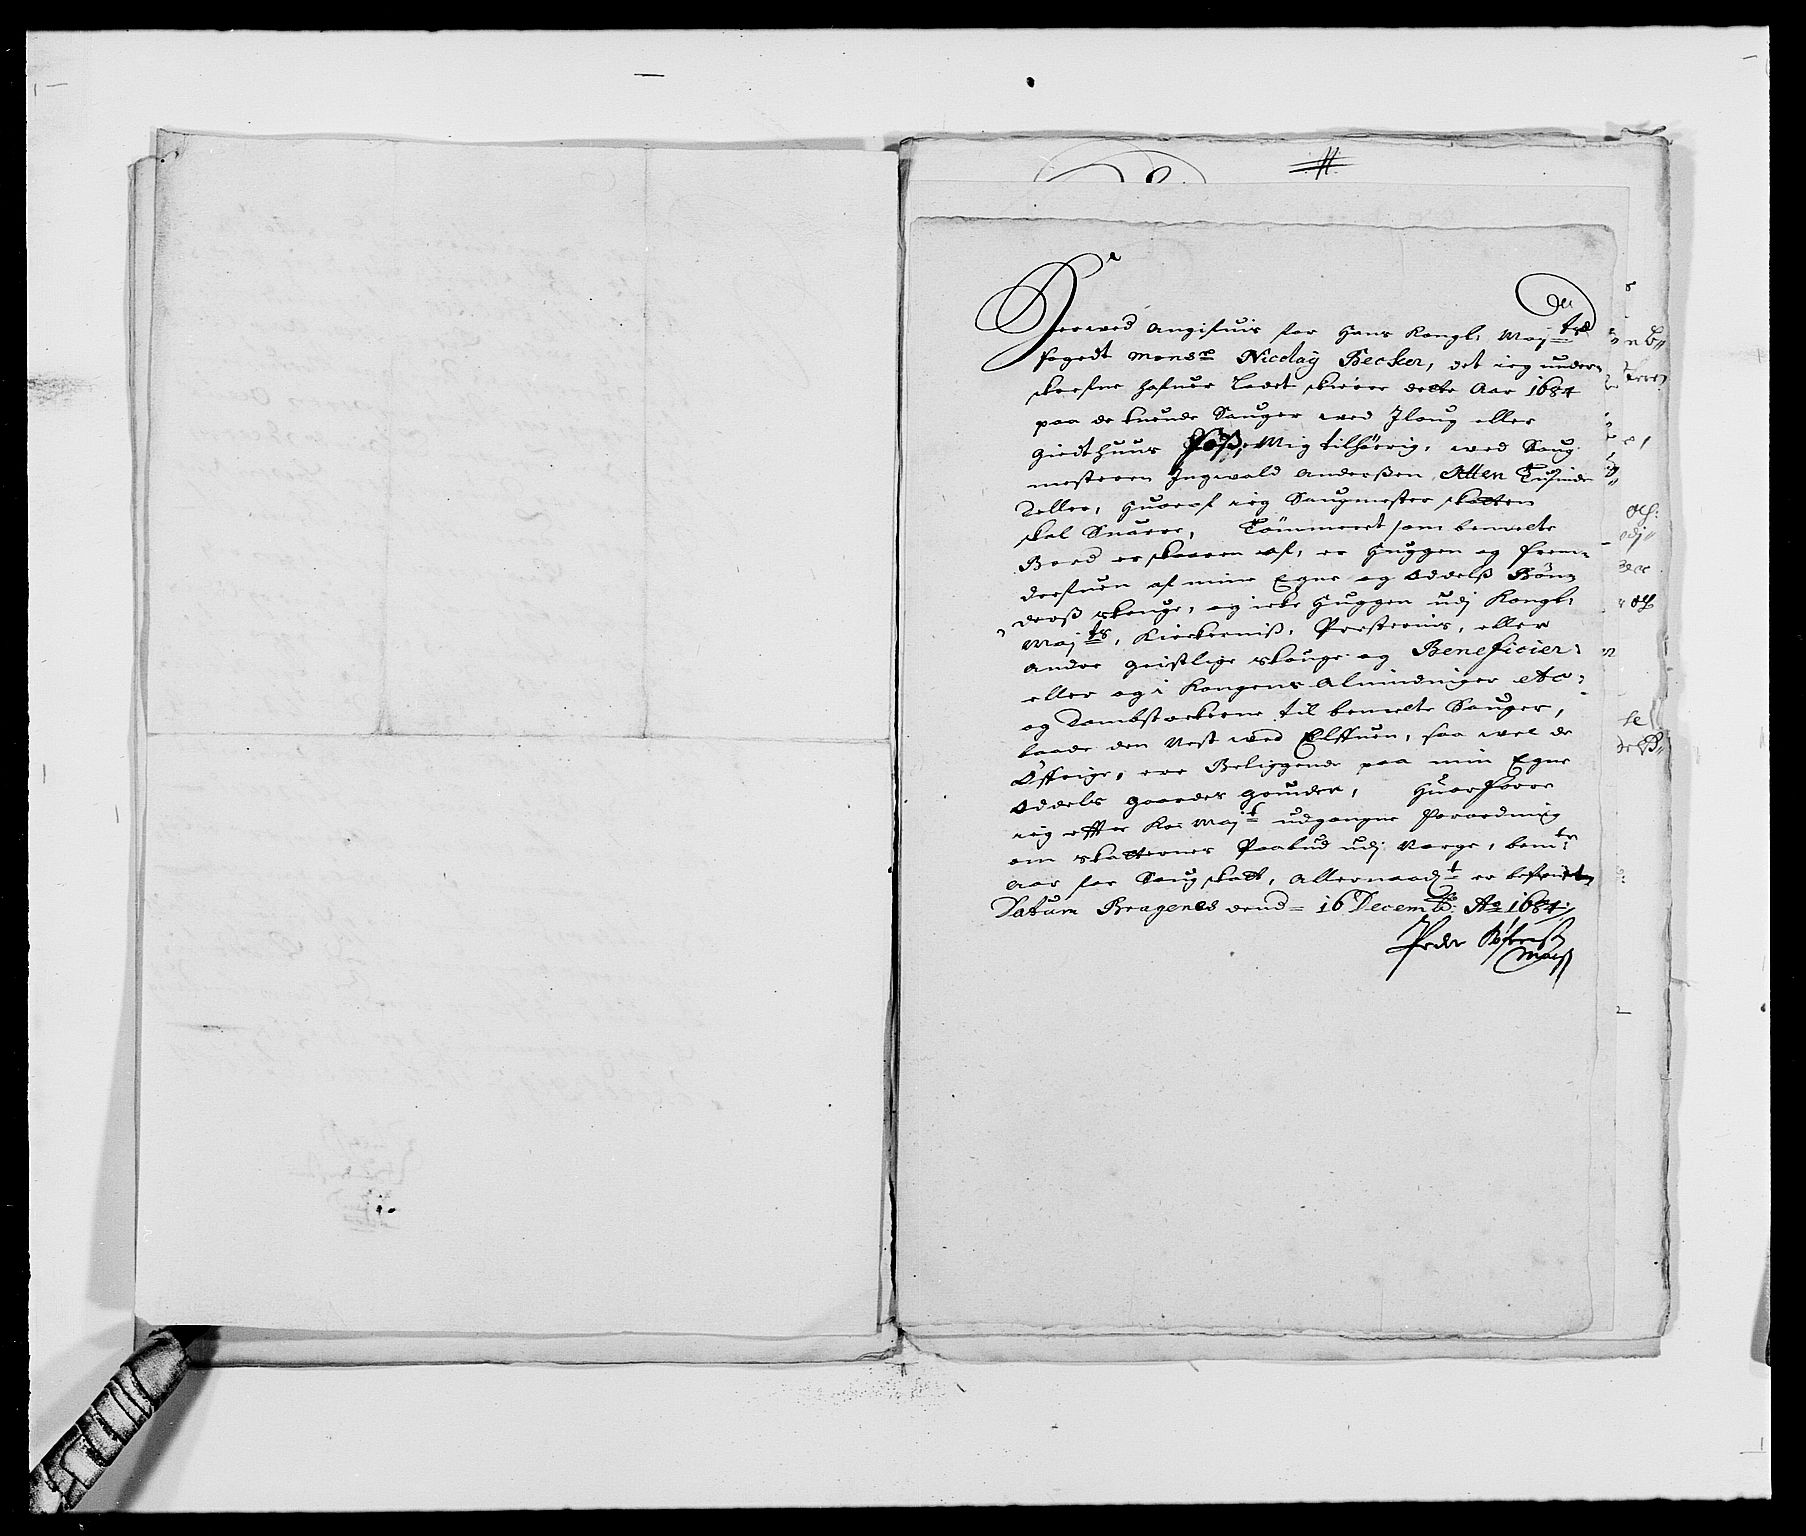 Herved Angifuis for Hans Kongl: Maj:ts
fogedt Monsr Nicolaÿ Becker, det ieg under-
skrefne hafuer Ladet skierre dette Aar 1684
paa de tuende Sauger ved Iloug eller
giedthuus Foss, Mig tilhörrig, ved Saug
mesteren Ingvald Anderßen Atten Tusinde
Deller, huoraf ieg Saugmester skatten
skal Suarre, Tömmeret som bemelte
Bord er skaaren af, er huggen og frem-
drefuen af mine Egne og Oddelß Bön-
derß skouge, og icke huggen udj Kongl:
Majts, Kierkerniß, Presternis, eller
andre geistlige skouge og Beneficier:
eller og i Kongens Almindinger etc:
og Dambstockerne til bemelte Sauger,
baade den Nest ved Elffuen, saa vel de
Öffrige, ere Beliggende paa min Egne
Oddels gaarders grunder, huorforre
ieg effter Ko: Majts udgangne forordning
om skatternes Paabud udj Norge, bemte
Aar for Saugskatt, Allernaadigt er befriet
Datum Bragenes dend 16 Decemb: Ao 1684
Peder